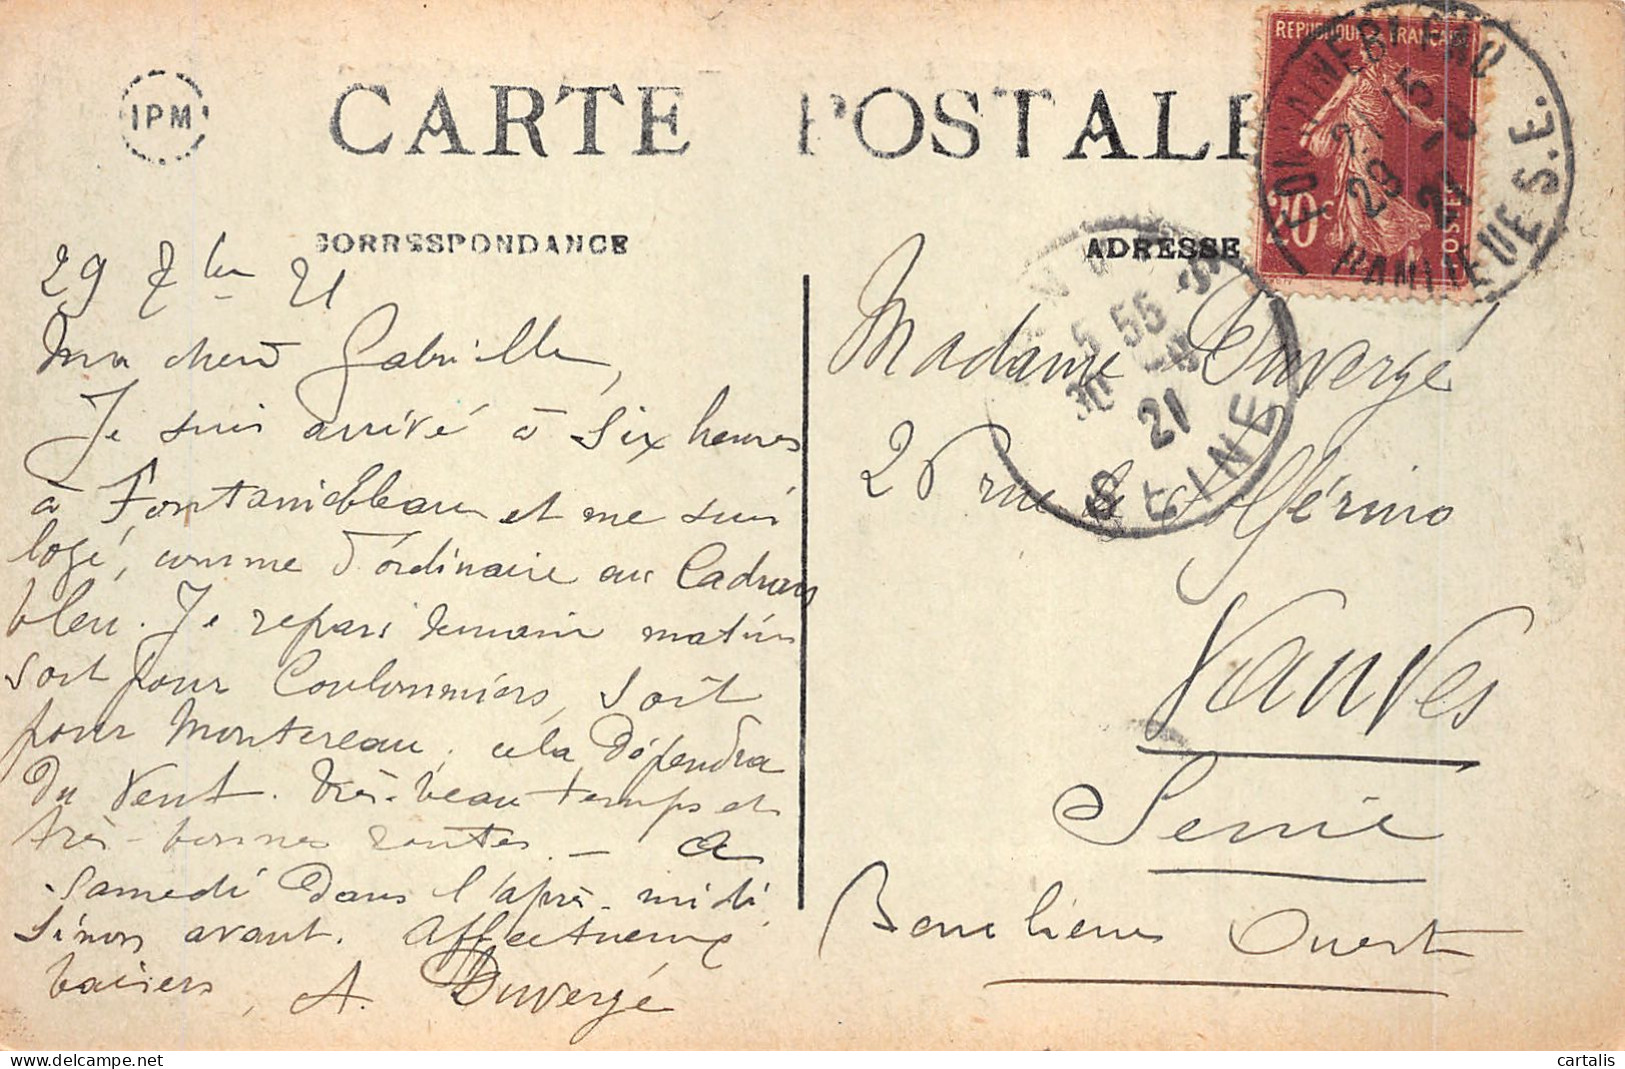 IPM
CARTE POSTALE
CORRESPONDANCE
ADRESSE
REPUBLIQUE FRANÇAISE
20 c
POSTES
FONTAINEBLEAU
21 15
29 - 9
21
S. ET M.
5 55
30 - 9
21
SEINE
29 7bre 21
Ma chère Gabrielle,
Je suis arrivé à six heures
à Fontainebleau et me suis
logé, comme d'ordinaire au Cadran
bleu. Je repars demain matin
soit pour Coulommiers, soit
pour Montereau, cela dépendra
du vent. Très-beau temps et
très-bonnes routes. — A
samedi dans l'après-midi,
sinon avant. Affectueux
baisers, A. Duvergé
Madame Duvergé
26 rue de Solférino
Vanves
Seine
Banlieue Ouest
cartalis